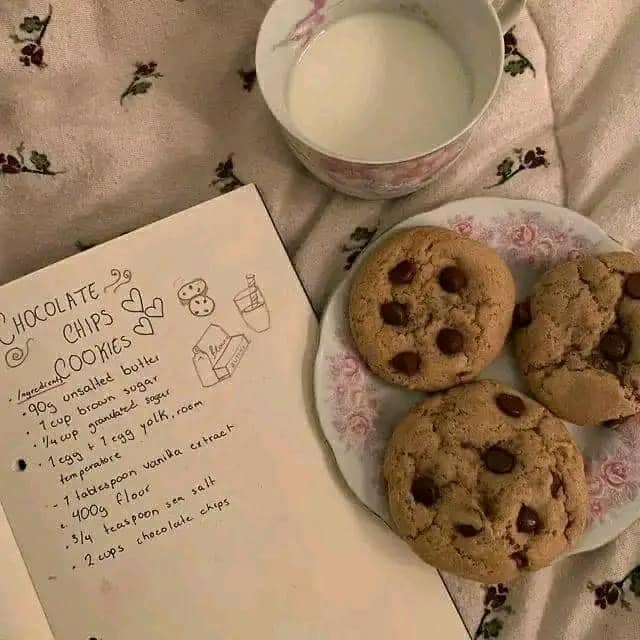 CHOCOLATE
CHIPS
COOKIES
• Ingredients
• 90g unsalted butter
• 1 cup brown sugar
• 1/4 cup granulated sugar
• 1 egg + 1 egg yolk, room
temperature
- 1 tablespoon vanilla extract
• 400g flour
• 3/4 teaspoon sea salt
• 2 cups chocolate chips